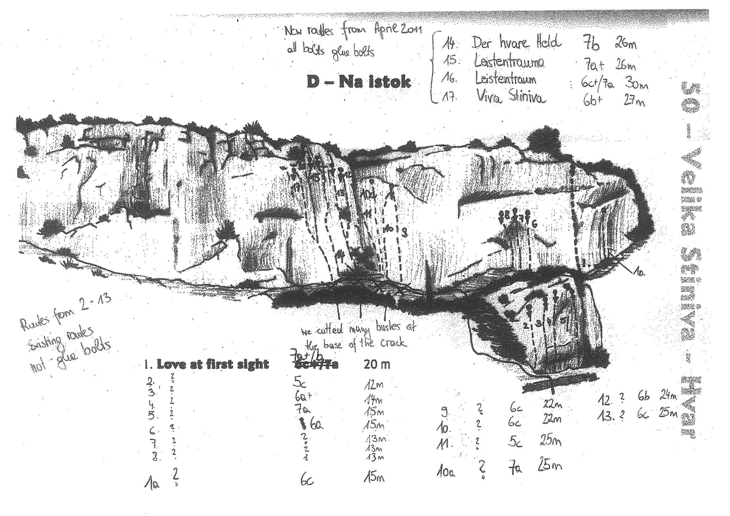 New routes from April 2011
all bolts glue bolts
14. Der hvare Held 7b 26m
15. Leistentrauma 7a+ 26m
16. Leistentraum 6c+/7a 30m
17. Viva Stiniva 6b+ 27m
D – Na istok
50 – Velika Stiniva – Hvar
Routes from 2-13
Existing routes
not glue bolts
we cutted many bushes at
the base of the crack
7a+/b
1. Love at first sight 6c+/7a 20 m
2. ? 5c 12m
3 ? 6a+ 14m
4. ? 7a 15m
5 ? 6a 15m
6. ? ? 13m
7 ? ? 13m
8. ? ? 13m
1a ? 6c 15m
9. ? 6c 22m
10. ? 6c 22m
11. ? 5c 25m
10a ? 7a 25m
12. ? 6b 24m
13. ? 6c 25m
17
15
14
11
10a
10
9
8
7
6
1a
2
3